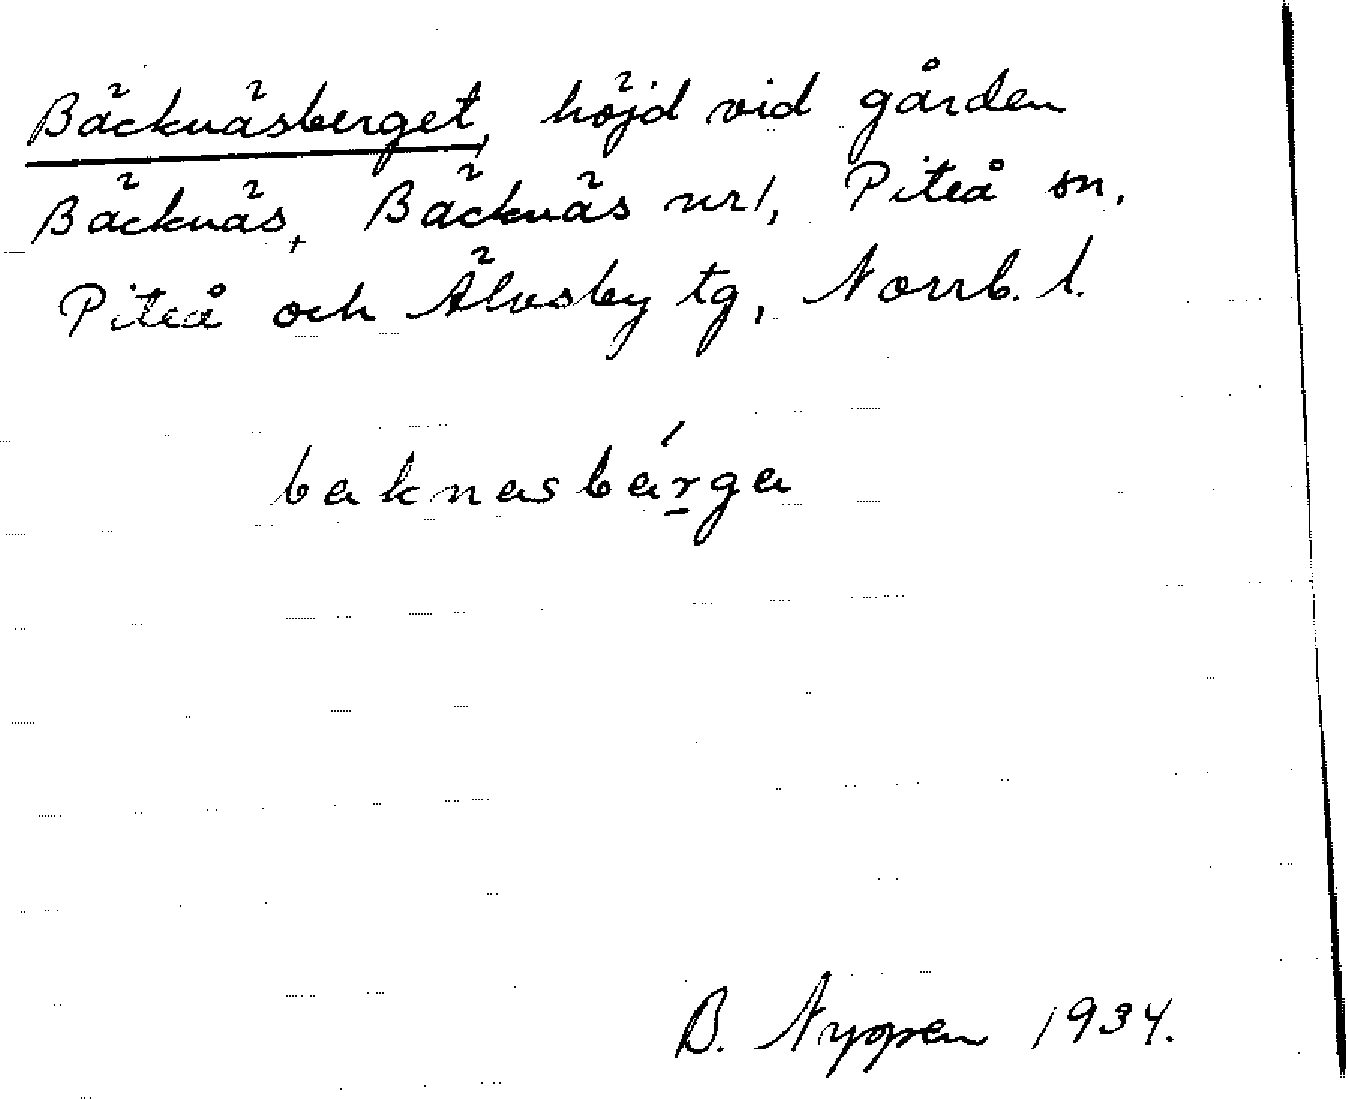 Bäcknäsberget, höjd vid gården
Bäcknäs, Bäcknäs nr 1, Piteå sn,
Piteå och Älvsby tg, Norrb. l.
baknasbárga
B. Nygren 1934.